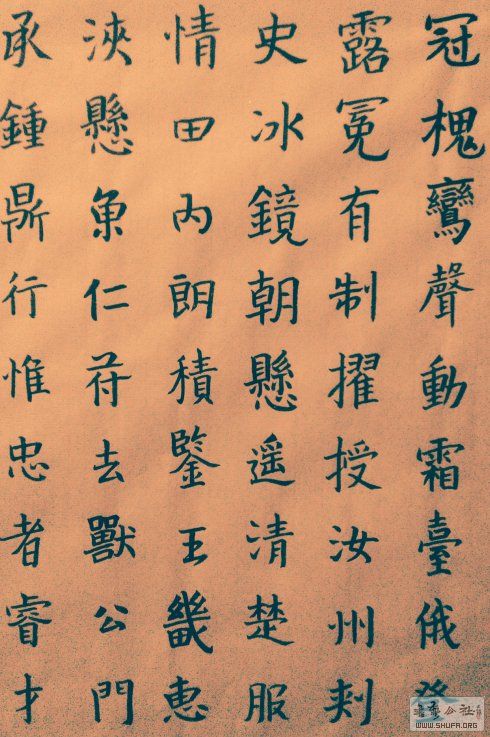 冠槐鸞聲動霜臺俄
露冕有制擢授汝州刾
史冰鏡朝懸遥清楚服
情田内朗積鑒王畿惠
浹懸魚仁苻去獸公門
承鍾鼎行惟忠者睿才
WWW.SHUFA.ORG